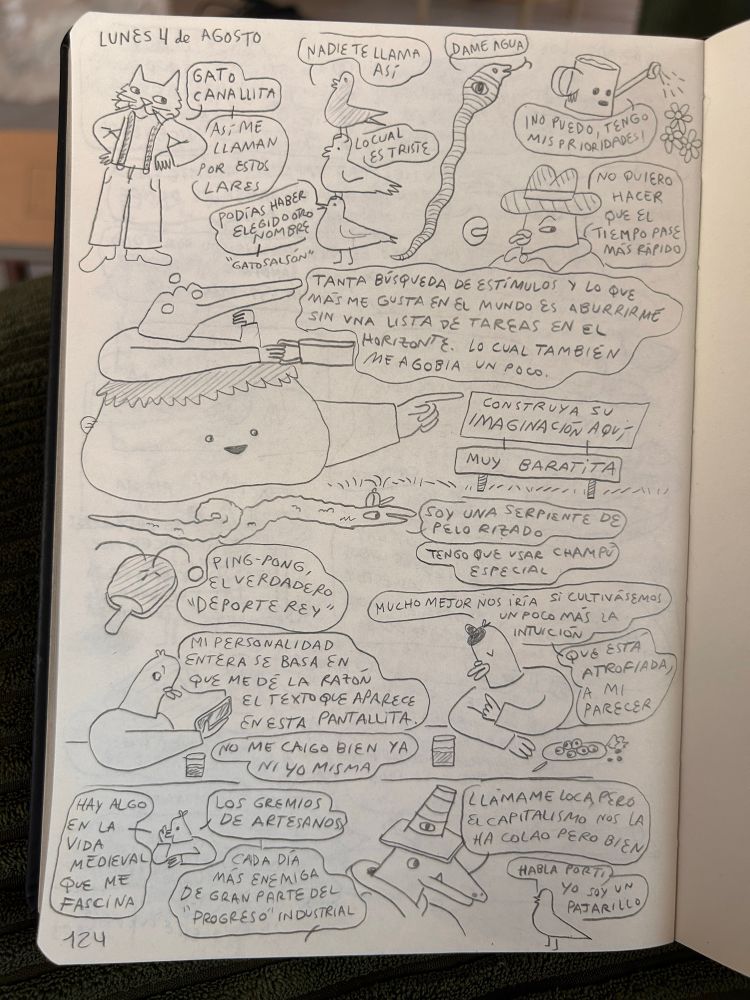 LUNES 4 de AGOSTO
GATO
CANALLITA
ASÍ ME
LLAMAN
POR ESTOS
LARES
NADIE TE LLAMA
ASÍ
LO CUAL
ES TRISTE
PODÍAS HABER
ELEGIDO OTRO
NOMBRE
"GATOSALSÓN"
DAME AGUA
¡NO PUEDO, TENGO
MIS PRIORIDADES!
NO QUIERO
HACER
QUE EL
TIEMPO PASE
MÁS RÁPIDO
TANTA BÚSQUEDA DE ESTÍMULOS Y LO QUE
MÁS ME GUSTA EN EL MUNDO ES ABURRIRME
SIN UNA LISTA DE TAREAS EN EL
HORIZONTE. LO CUAL TAMBIÉN
ME AGOBIA UN POCO.
CONSTRUYA SU
IMAGINACIÓN AQUÍ
MUY BARATITA
SOY UNA SERPIENTE DE
PELO RIZADO
TENGO QUE USAR CHAMPÚ
ESPECIAL
PING-PONG,
EL VERDADERO
"DEPORTE REY"
MUCHO MEJOR NOS IRÍA SI CULTIVÁSEMOS
UN POCO MÁS LA
INTUICIÓN
QUE ESTÁ
ATROFIADA,
A MI
PARECER
MI PERSONALIDAD
ENTERA SE BASA EN
QUE ME DÉ LA RAZÓN
EL TEXTO QUE APARECE
EN ESTA PANTALLITA.
NO ME CAIGO BIEN YA
NI YO MISMA
HAY ALGO
EN LA
VIDA
MEDIEVAL
QUE ME
FASCINA
LOS GREMIOS
DE ARTESANOS
CADA DÍA
MÁS ENEMIGA
DE GRAN PARTE DEL
"PROGRESO" INDUSTRIAL
LLÁMAME LOCA, PERO
EL CAPITALISMO NOS LA
HA COLAO PERO BIEN
HABLA POR TI
YO SOY UN
PAJARILLO
124